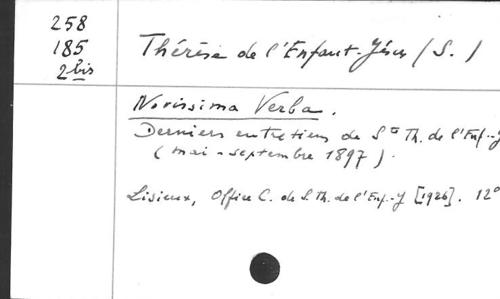 258
185
2 bis
Thérèse de l'Enfant-Jésus (S.)
Novissima Verba.
Derniers entretiens de Ste Th. de l'Enf.-J
(mai-septembre 1897).
Lisieux, Office C. de S. Th. de l'Enf.-J [1926]. 12°